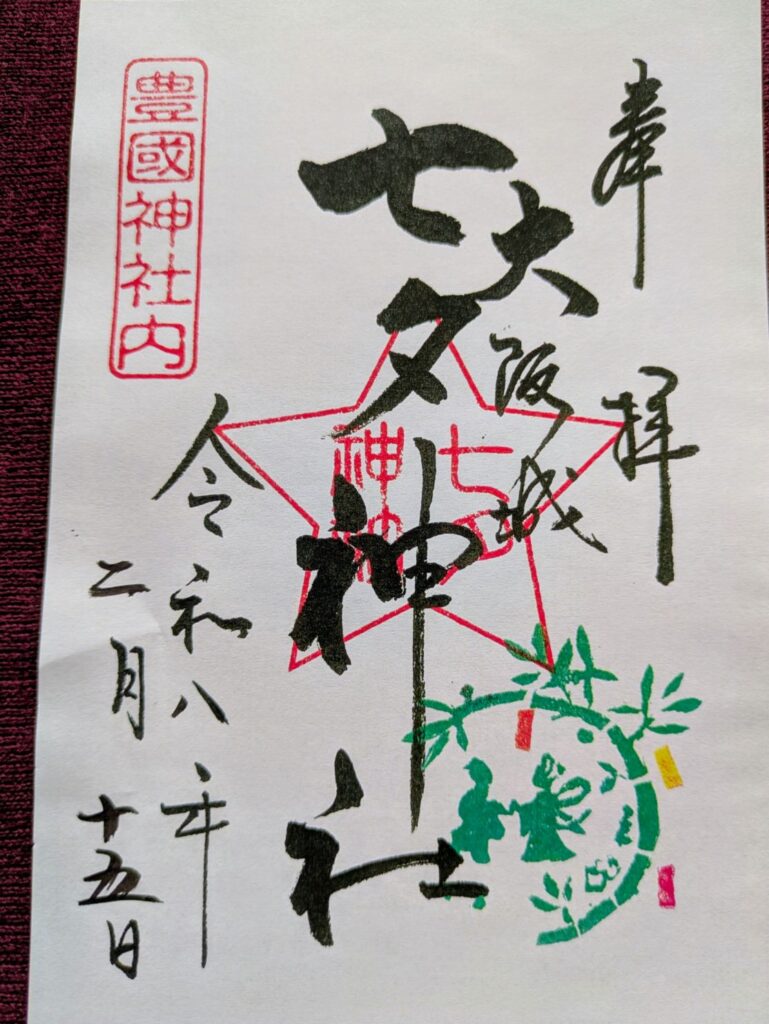 奉拝
大阪城
七夕神社
七夕
神社
令和八年
二月十五日
豊國神社内